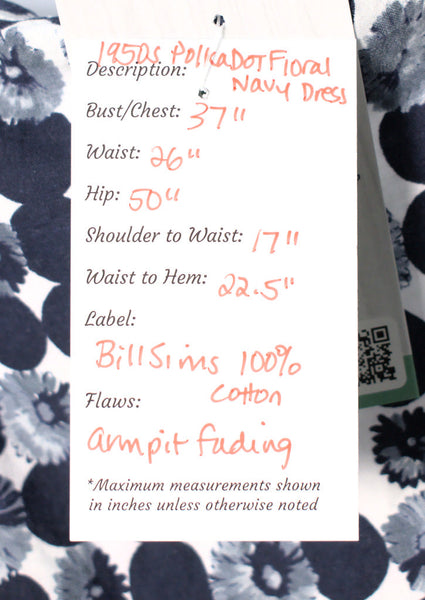 1950s Polka Dot Floral
Description:
Navy Dress
Bust/Chest: 37"
Waist: 26"
Hip: 50"
Shoulder to Waist: 17"
Waist to Hem: 22.5"
Label:
Bill Sims 100%
Cotton
Flaws:
armpit fading
*Maximum measurements shown
in inches unless otherwise noted